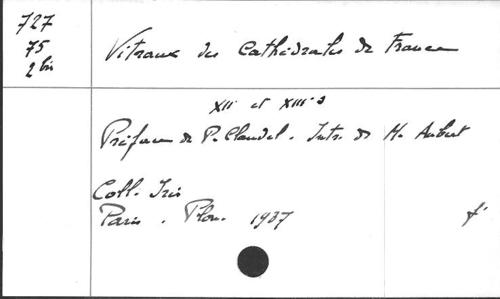 727
75
2 bis
Vitraux des Cathédrales de France
XIIe et XIIIe s
Préface de P. Claudel. Intr. de M. Aubert
Coll. Iris
Paris. Plon. 1937
f°